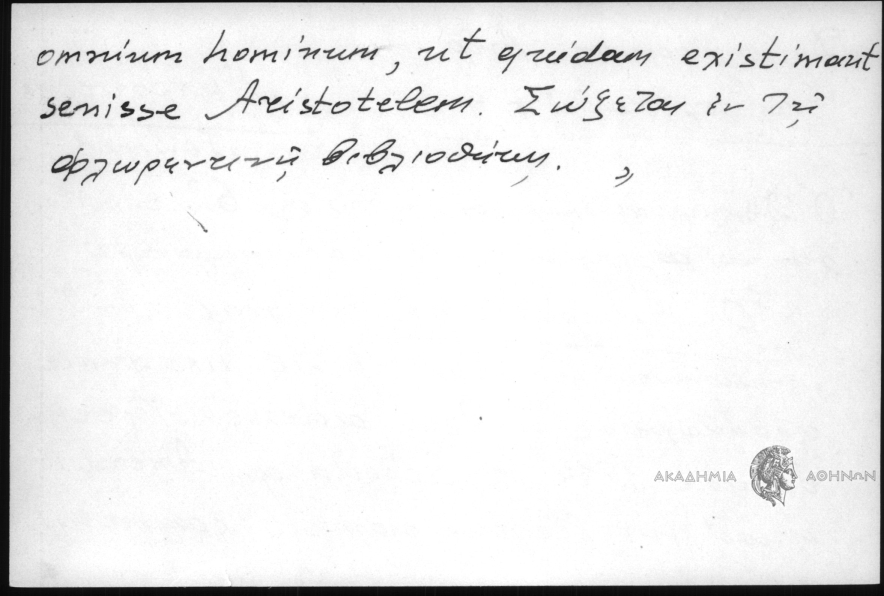 omnium hominum, ut quidam existimant
senisse Aristotelem. Σώζεται ἐν τῇ
φλωρεντινῇ βιβλιοθήκῃ. „
ΑΚΑΔΗΜΙΑ ΑΘΗΝΩΝ